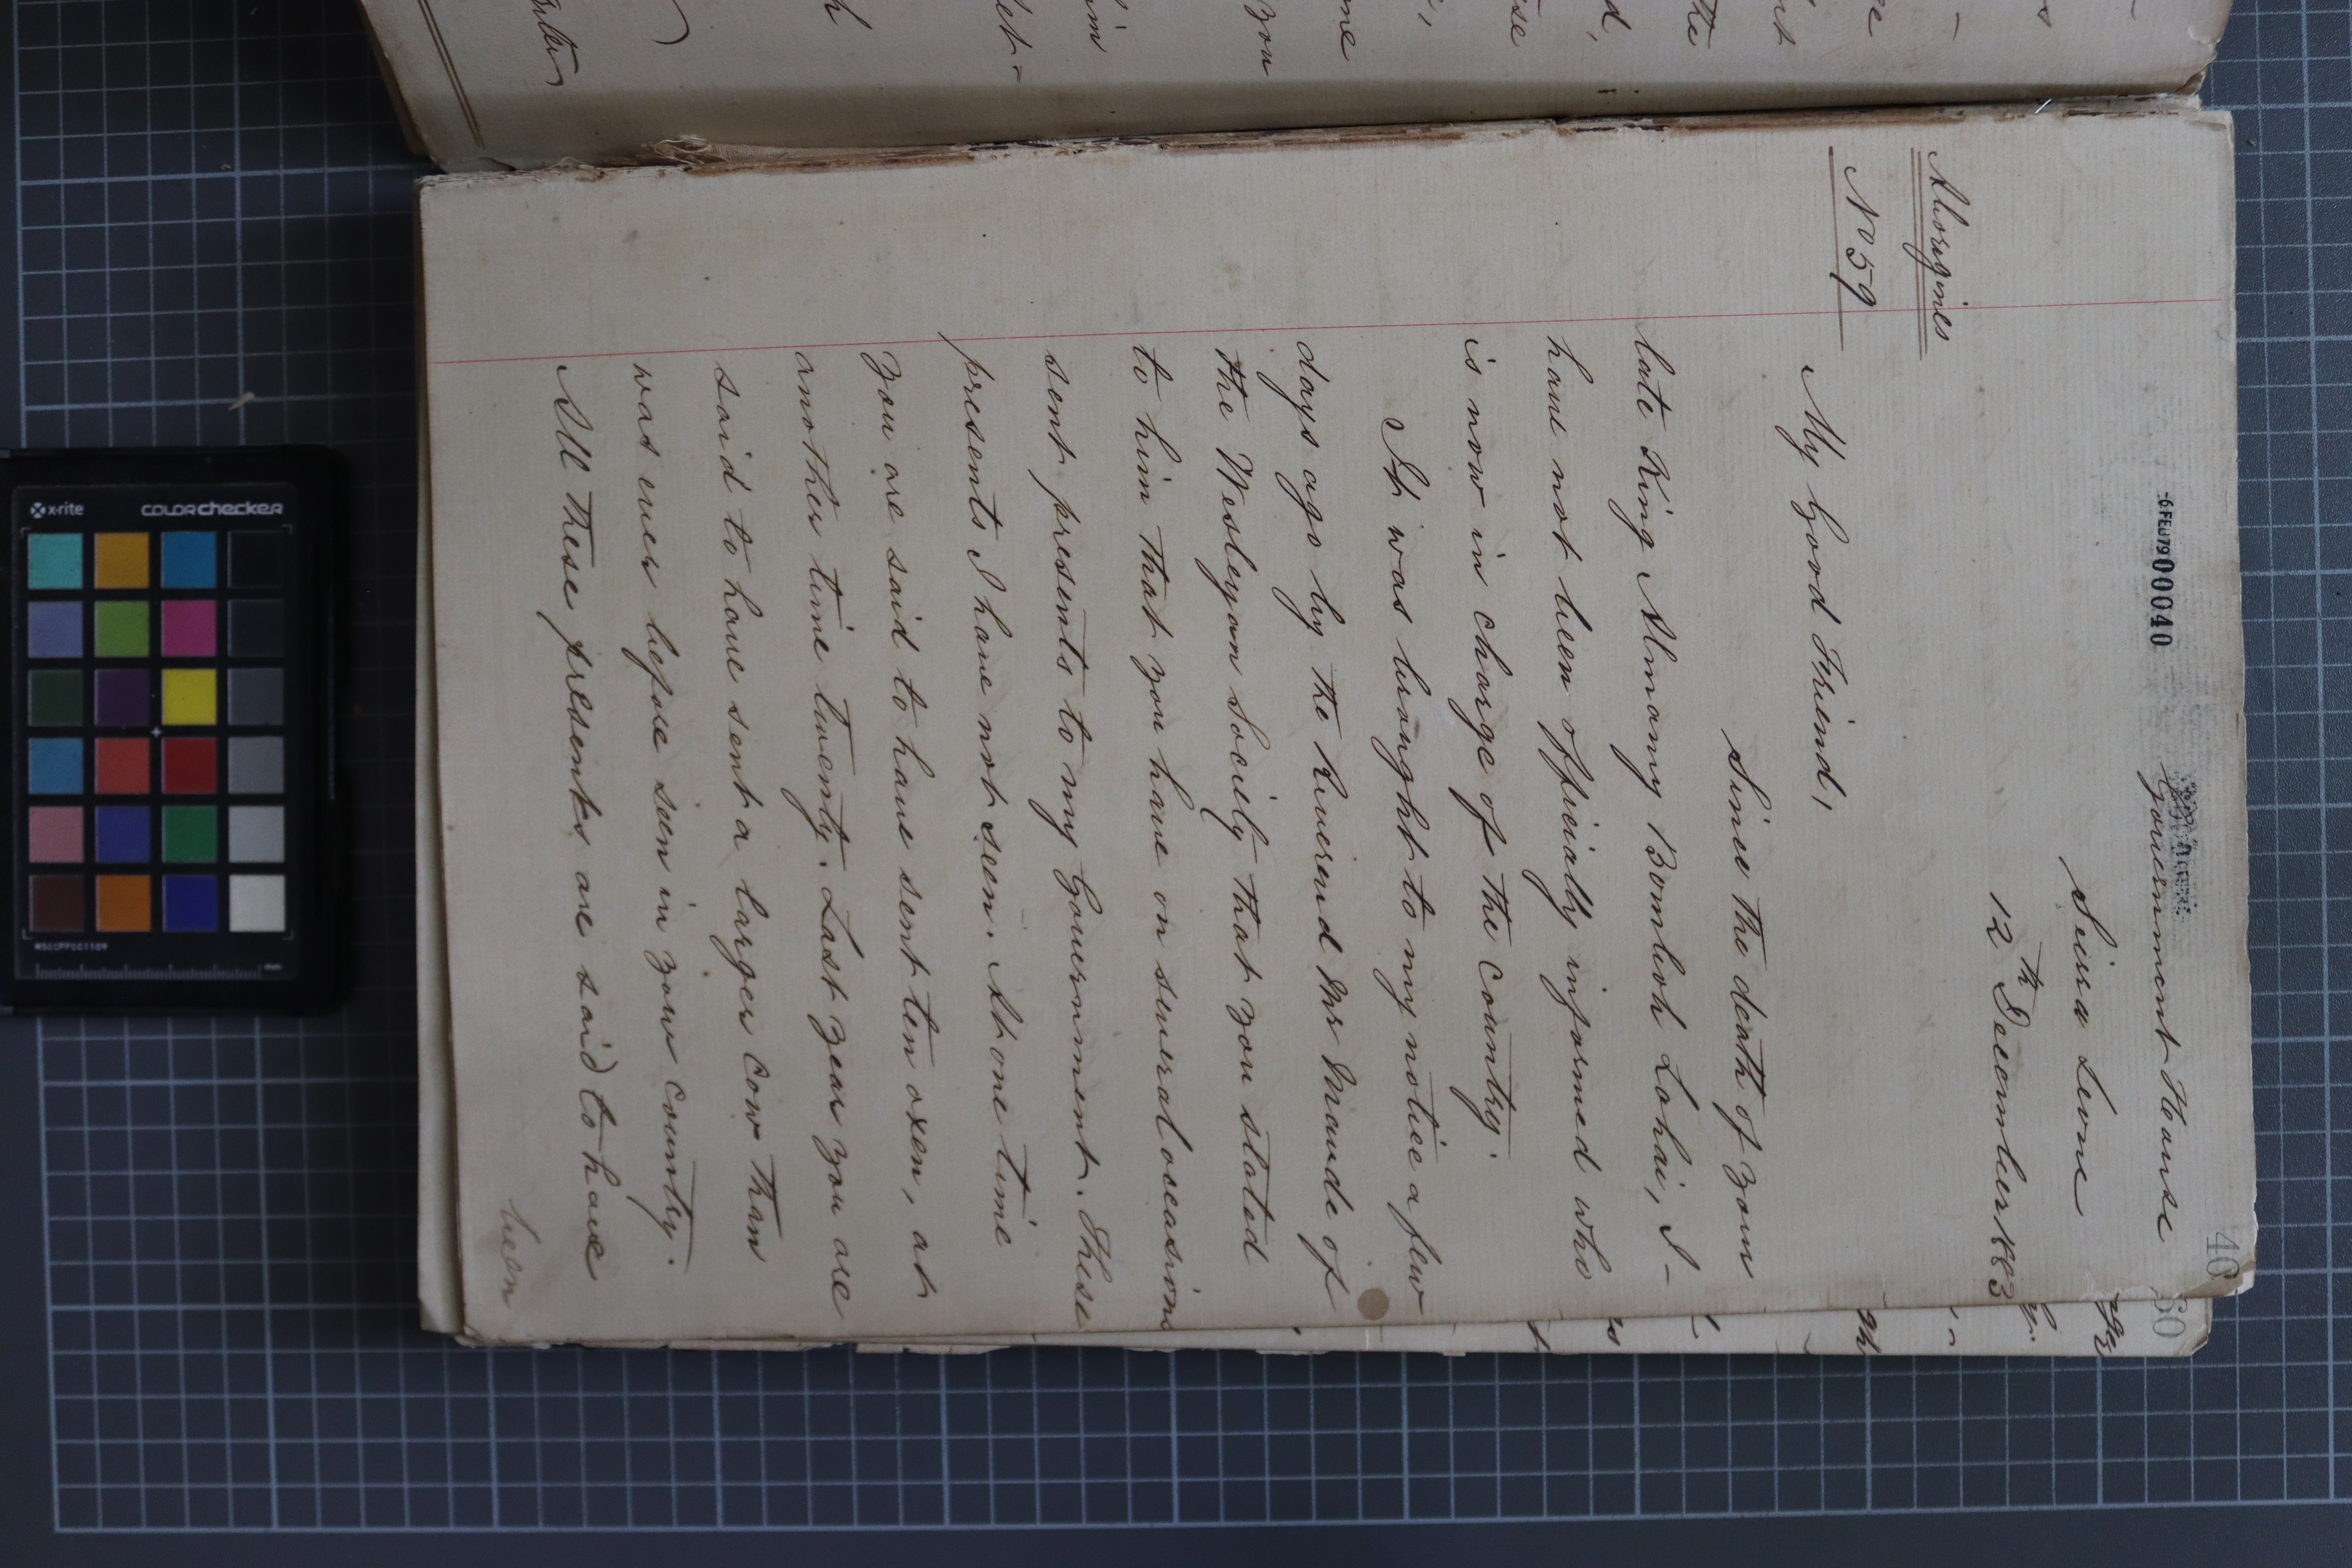 40
-6 FEB 79 00040
Government House
Seirra Leone
12th December 1883
Aborigines
No 59
My Good Friend,
Since the death of your
late King Almamy Bomboh Lahai, I-
have not been officially informed who
is now in charge of the country.
It was brought to my notice a few
days ago by the Reverend Mr Maude of
the Wesleyan Society that you stated
to him that you have on several occasions
sent presents to my Government. These
presents I have not seen. At one time
you are said to have sent ten oxen, at
another time twenty. Last year you are
said to have sent a larger cow than
was ever before seen in your country.
All these presents are said to have
been
60
x-rite
colorchecker
MSCCPPCC1109
mm